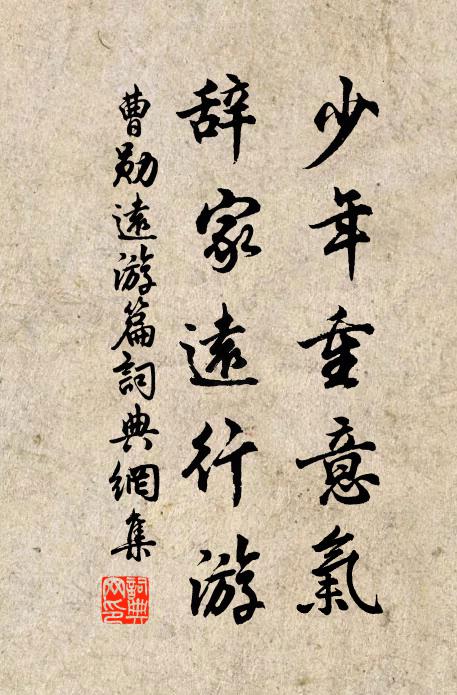 少年重意氣
辞家遠行游
曹勛遠游篇詞典網集
詞典网印